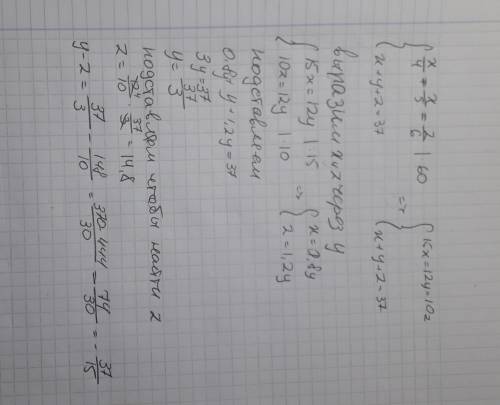 { x/4 = y/5 = z/6 | 60 => { 15x=12y=10z
{ x+y+z=37 { x+y+z=37
выразим x и z через y
{ 15x=12y | :15 => { x=0,8y
{ 10z=12y | :10 { z=1,2y
подставляем
0.8y+y+1,2y=37
3y=37
y=37/3
подставляем чтобы найти z
z=12y/10 · 37/3=14,8
y-z=37/3-148/10=370-444/30=-74/30=-37/15